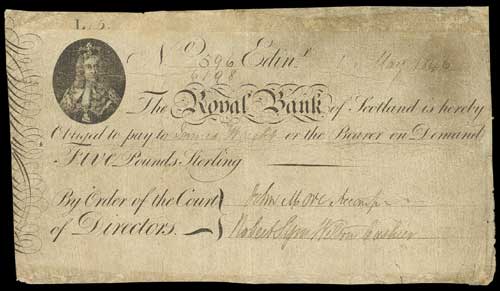 L 5.
No 396 Edinr 1 May
6198
The Royal Bank of Scotland is hereby
Obliged to pay to or the Bearer on Demand
Five Pounds Sterling
By Order of the Court John More Accompt
of Directors. Robert Cashier